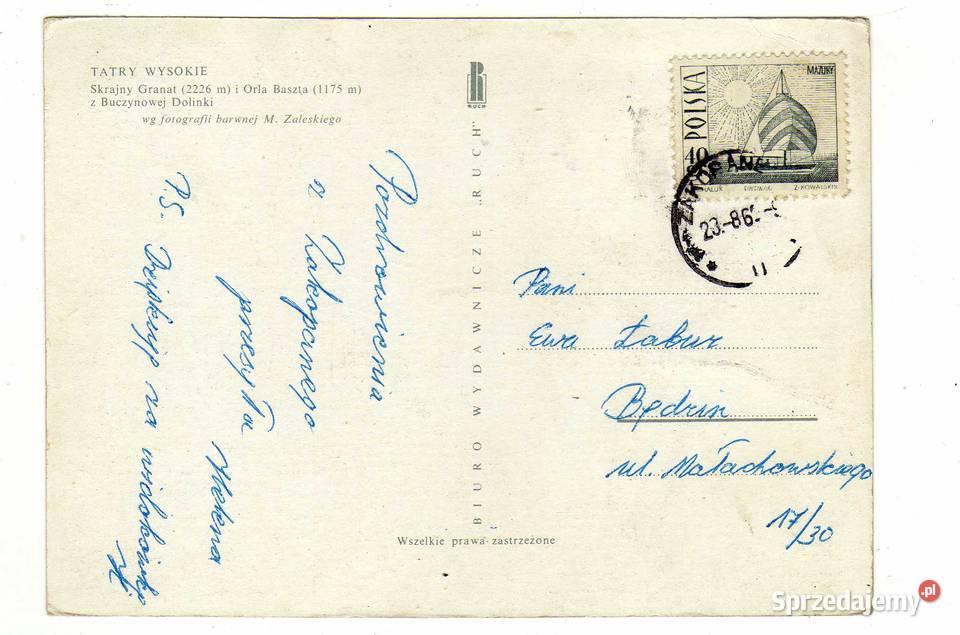 TATRY WYSOKIE
Skrajny Granat (2226 m) i Orla Baszta (1175 m)
z Buczynowej Dolinki
wg fotografii barwnej M. Zaleskiego
Pozdrowienia
z Zakopanego
przesyła
P.S. Dziękuję za widokówkę
RUCH
BIURO WYDAWNICZE „RUCH"
Wszelkie prawa zastrzeżone
POLSKA
40
MAZURY
Z·KOWALSKI
ZAKOPANE
23.-8.6
Pani
Ewa Łabuz
Będzin
ul. Małachowskiego
17/30
Sprzedajemy.pl